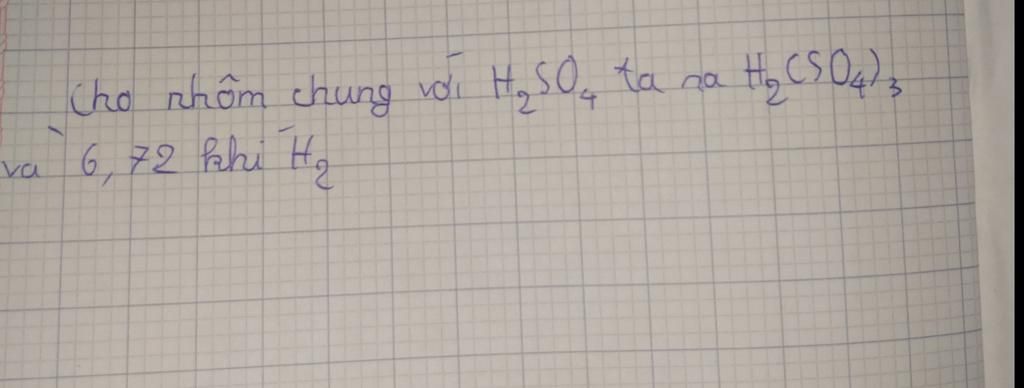 Cho nhôm chung với H₂SO₄ ta ra H₂(SO₄)₃
và 6,72 khí H₂